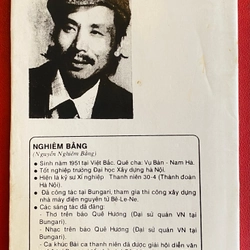 NGHIÊM BẰNG
(Nguyễn Nghiêm Bằng)
• Sinh năm 1951 tại Việt Bắc. Quê cha: Vụ Bản - Nam Hà.
• Tốt nghiệp trường Đại học Xây dựng hà Nội.
• Hiện là kỹ sư Xí nghiệp - Thanh niên 30-4 (Thành đoàn Hà Nội).
• Đã công tác tại Bungari, tham gia thi công xây dựng nhà máy điện nguyên tử Bê-Le-Ne.
• Các sáng tác đã đăng:
- Thơ trên báo Quê Hương (Đại sứ quán VN tại Bungari).
- Nhạc trên báo Quê Hương (Đại sứ quán VN tại Bungari).
- Ca khúc Bài ca thanh niên đã được giải hội diễn văn